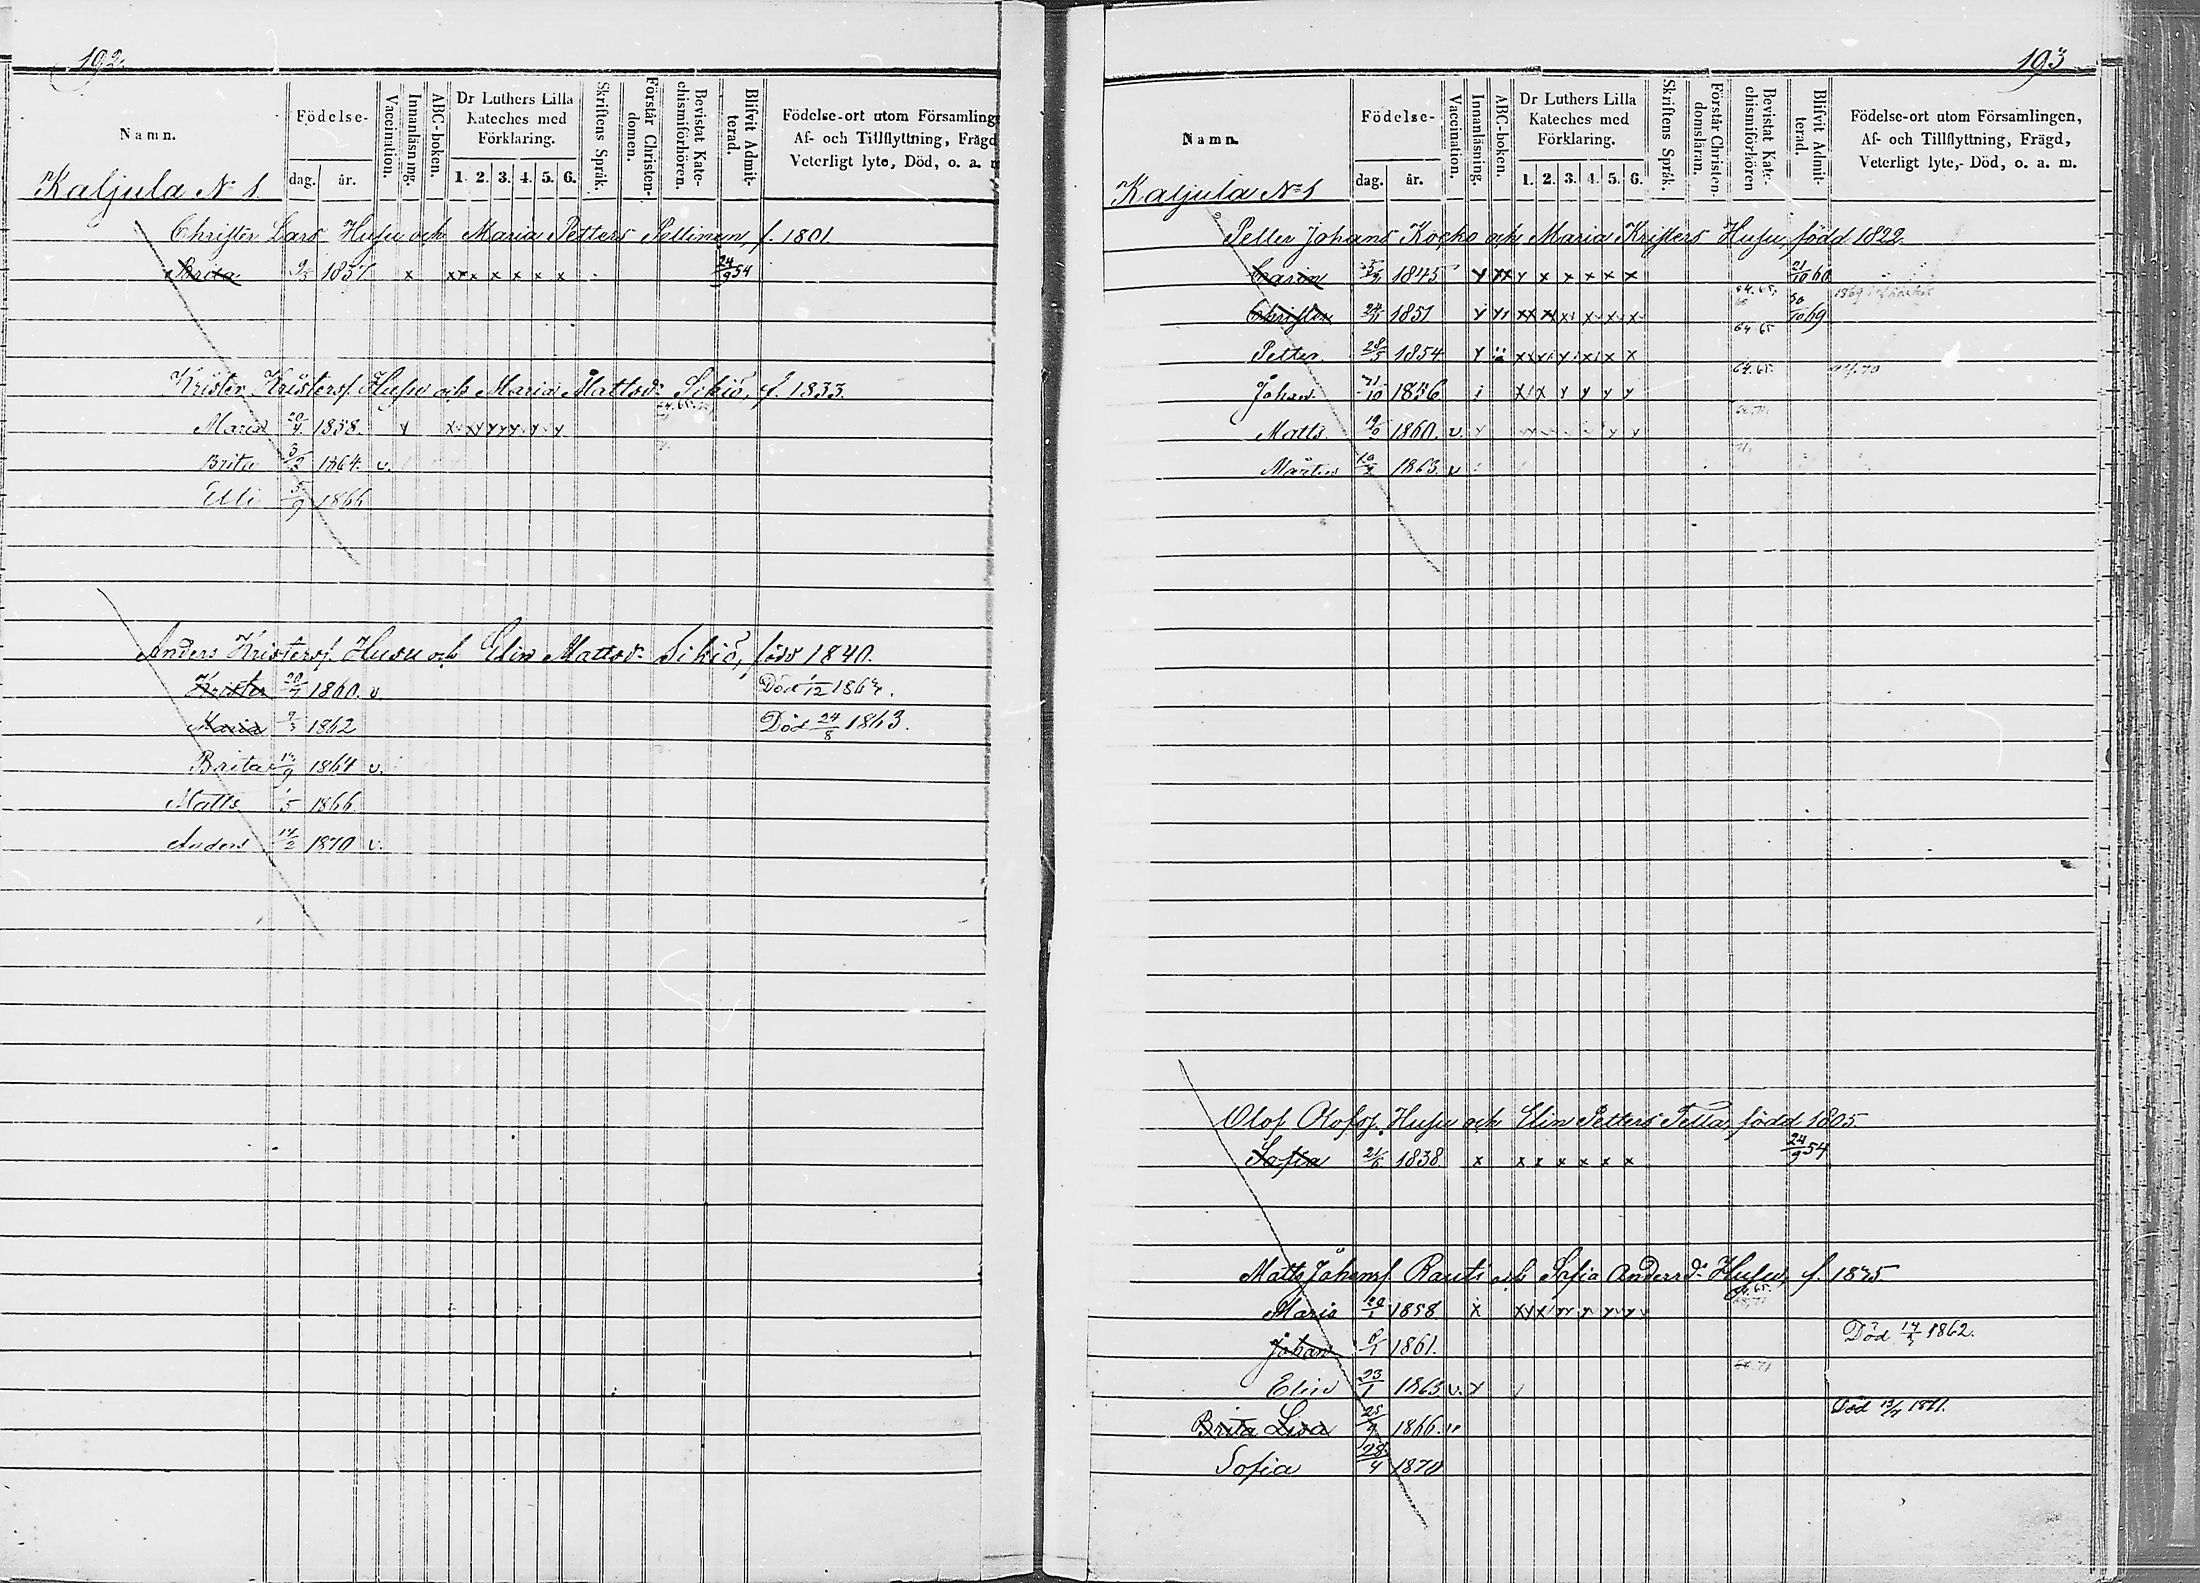 192.
Namn.
Födelse-
dag. år.
Vaccination.
Innanläsning.
ABC-boken.
Dr Luthers Lilla Kateches med Förklaring.
1. 2. 3. 4. 5. 6.
Skriftens Språk.
Förstår Christendomen.
Bevistat Katechismiförhören.
Blifvit Admitterad.
Födelse-ort utom Församling
Af- och Tillflyttning, Frägd
Veterligt lyte, Död, o. a. m
Kaljula No 1.
Christer Lars Husu och Maria Petters Pellinen, f. 1801.
Brita 1837 x x x x x x x x 24/9 54
Krister Kristersf. Husu och Maria Mattsd: Sikiö, f. 1833.
Maria 1858.
Brita 3/2 1864. v.
Elli 5/9 1866
Anders Kristersf. Husu och Elin Mattsd: Sikiö, född 1840.
Krister 1860. v. Död 1/12 186
Maria 1862 Död 24/8 1863.
Brita 1864 v.
Matts 1/5 1866.
Anders 14/2 1870 v.
193
Namn.
Födelse-
dag. år.
Vaccination.
Innanläsning.
ABC-boken.
Dr Luthers Lilla Kateches med Förklaring.
1. 2. 3. 4. 5. 6.
Skriftens Språk.
Förstår Christendomsläran.
Bevistat Katechismiförhören
Blifvit Admitterad.
Födelse-ort utom Församlingen,
Af- och Tillflyttning, Frägd,
Veterligt lyte,- Död, o. a. m.
Kaljula No 1
Petter Johans Kocko och Maria Kristers Husu, född 1822.
Carin 1845 21/10 60
Christer 24/11 1851 64.65. 30/10 69
Petter 28/5 1854 64 65
Johan 21/10 1856 64.65.
Matts 19/9 1860. v.
Mårten 1863. v
Olof Olofsf. Husu och Elin Petters Tella, född 1805
Sofia 21/6 1838 x x x x x x x 24/9 54
Matts Johansf. Rauti och Sofia Andersd: Husu, f. 1835
Maria 1858 x
Johan 1861. Död 1862.
Elin 23/1 1863 v.
Brita Lisa 25/9 1866. v Död 13/4 1871.
Sofia 28/4 1870